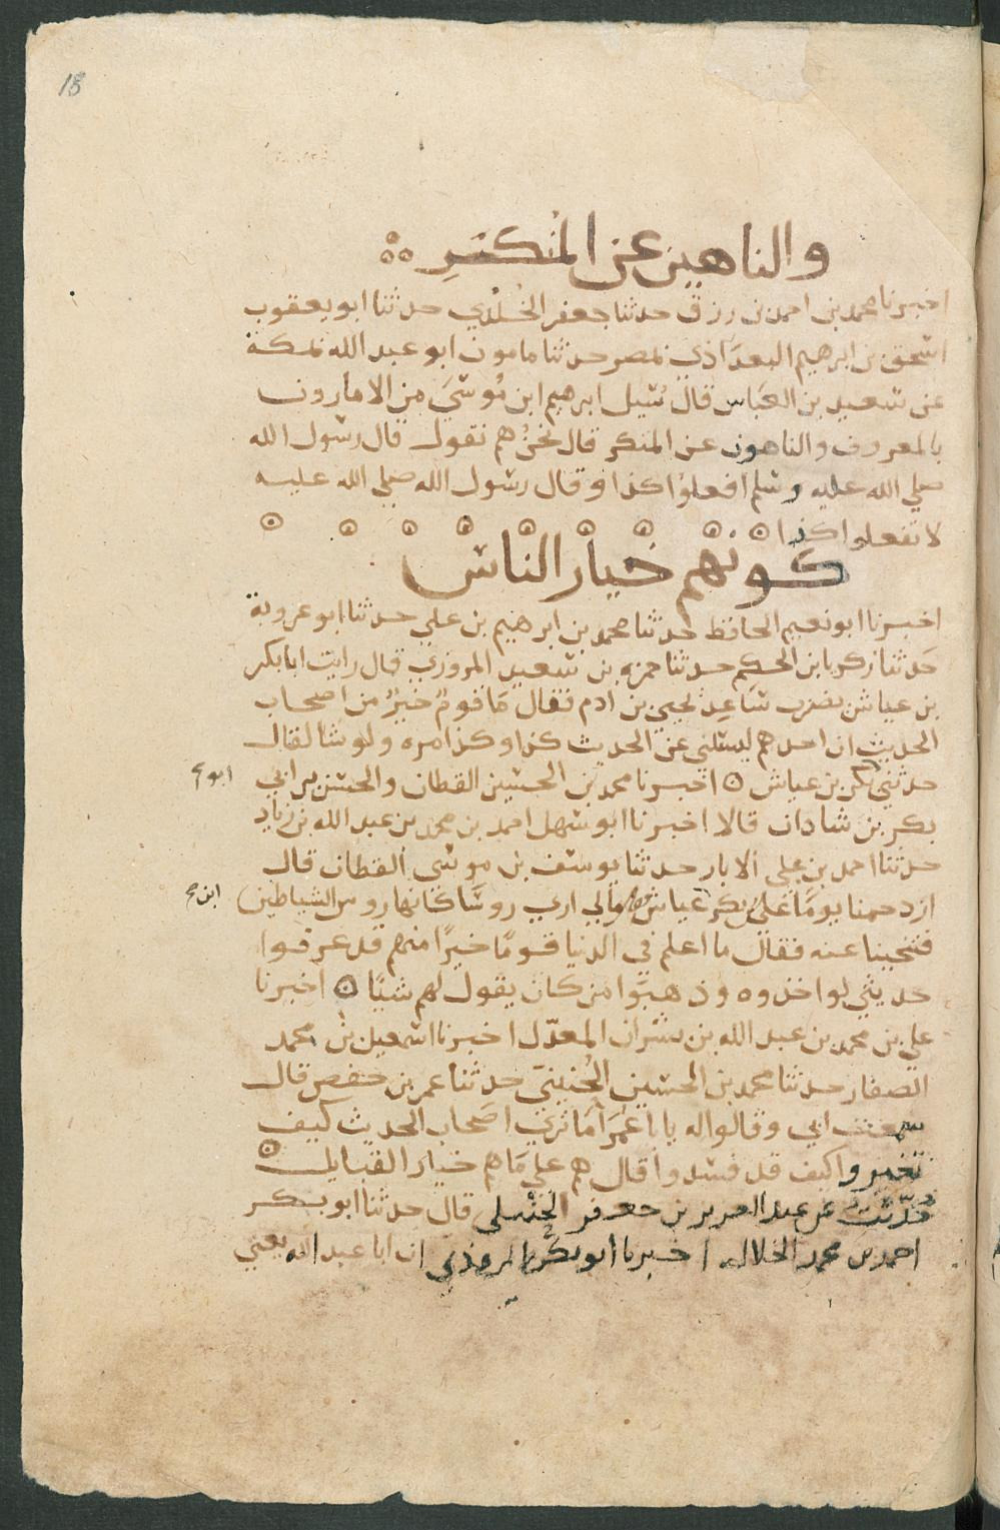 18
والناهين عن المنكر
اخبرنا محمد بن احمد بن رزق حدثنا جعفر الخلدي حدثنا ابو يعقوب
اسحق بن ابرهيم البغداذي بمصر حدثنا مامون ابو عبد الله بمكة
عن سعيد بن العباس قال سيل ابرهيم ابن موسى من الامرون
بالمعروف والناهون عن المنكر قال نحن هم نقول قال رسول الله
صلى الله عليه وسلم افعلوا كذا وقال رسول الله صلى الله عليه
لا تفعلوا كذا
كونهم خيار الناس
اخبرنا ابو نعيم الحافظ حدثنا محمد بن ابرهيم بن علي حدثنا ابو عروبة
حدثنا زكريا بن الحكم حدثنا حمزه بن سعيد المروزي قال رايت ابا بكر
بن عياش يضرب ساعد يحيى بن ادم فقال ما قوم خير من اصحاب
الحديث ان احدهم ليسلني عن الحديث كذا وكذا مره ولو شا لقال
حدثني بكر بن عياش اخبرنا محمد بن الحسين القطان والحسن بن ابي
ابو
بكر بن شاذان قالا اخبرنا ابو سهل احمد بن محمد بن عبد الله بن زياد
حدثنا احمد بن علي الابار حدثنا يوسف بن موسى القطان قال
ازدحمنا يوما على بكر عياش فقال مالي ارى روسا كانها روس الشياطين
ابن
فتنحينا عنه فقال ما اعلم في الدنيا قوما خيرا منهم قد عرفوا
حديثي لو اخذوه وذهبوا من كان يقول لهم شيا اخبرنا
علي بن محمد بن عبد الله بن بشران المعدل اخبرنا اسمعيل بن محمد
الصفار حدثنا محمد بن الحسين الحنيني حدثنا عمر بن حفص قال
سمعت ابي وقالوا له يا با عمر اما ترى اصحاب الحديث كيف
تغيروا كيف قد فسدوا قال هم على ما هم خيار القبايل
حدثت عن عبد العزيز بن جعفر الحنبلي قال حدثنا ابو بكر
احمد بن محمد الخلال اخبرنا ابو بكر المروذي ان ابا عبد الله يعني